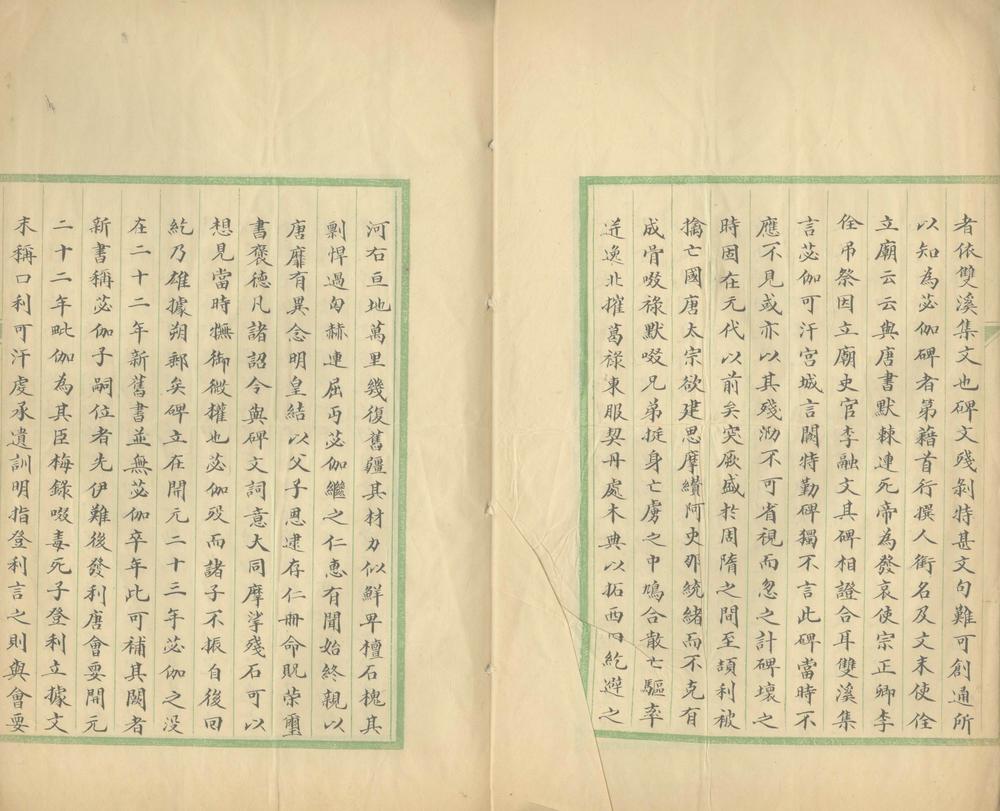 者依雙溪集文也碑文殘剝特甚文句難可創通所
以知為苾伽碑者第藉首行撰人銜名及文末使佺
立廟云云與唐書默棘連死帝為發哀使宗正卿李
佺吊祭因立廟史官李融文其碑相證合耳雙溪集
言苾伽可汗宮城言闕特勤碑獨不言此碑當時不
應不見或亦以其殘泐不可省視而忽之計碑壞之
時固在元代以前矣突厥盛於周隋之間至頡利被
擒亡國唐太宗欲建思摩纘阿史那統緒而不克有
成骨啜祿默啜兄弟挺身亡虜之中鳩合散亡驅率
迸逸北摧葛祿東服契丹處木典以拓西回紇避之
河右亘地萬里幾復舊疆其材力似鮮卑檀石槐其
剽悍過匈赫連屈丐苾伽繼之仁惠有聞始終親以
唐靡有異念明皇結以父子恩逮存仁冊命貺榮璽
書褒德凡諸詔令與碑文詞意大同摩挲殘石可以
想見當時撫御微權也苾伽歿而諸子不振自後回
紇乃雄據朔鄣矣碑立在開元二十三年苾伽之沒
在二十二年新舊書並無苾伽卒年此可補其闕者
新書稱苾伽子嗣位者先伊難後發利唐會要開元
二十二年毗伽為其臣梅錄啜毒死子登利立據文
末稱口利可汗虔承遺訓明指登利言之則與會要